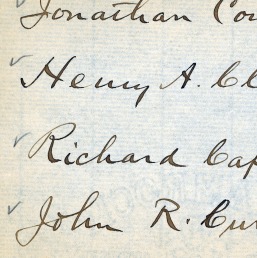 Jonathan Co
Henry A. Cl
Richard Cap
John R. Cur